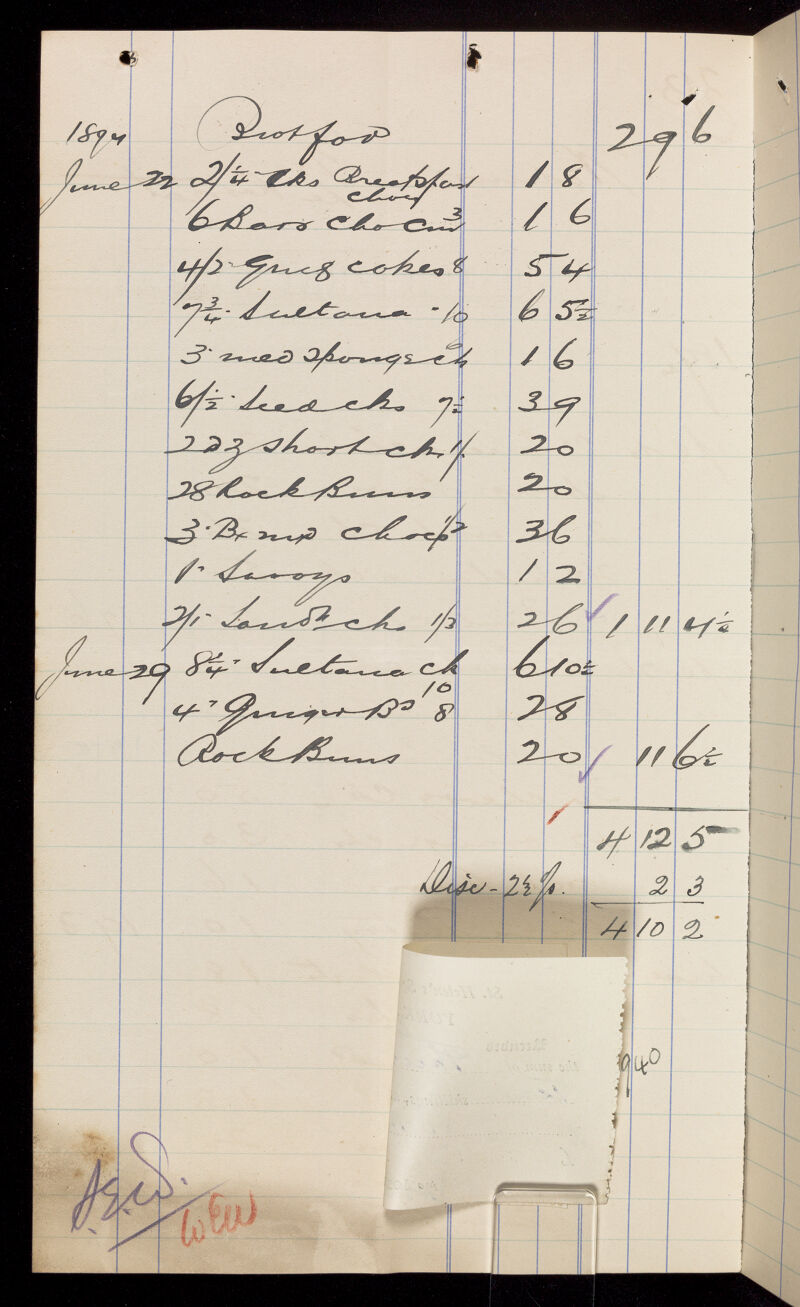 1894 Brot for 2 9 6
June 22 2/¼ cks Breakfast 1 8
choc
6 Bars Choc Cm 3 1 6
4/2 cakes 8 5 4
7¾ Sultana - 10 6 5½
3 med Sponge ck 1 6
6/½ Seed cks 7½ 3 9
2 Dz Short ck 1/. 2 0
28 Rock Buns 2 0
3 Bx mx Chocs 1/2 3 6
1 Savoys 1 2
2/1 Sandh ck 1/3 2 6 1 11 4½
June 29 8¼ Sultana ck 10 6 10½
4 Ginger Bd 8 2 8
Rock Buns 2 0 11 6½
4 12 5
Disc - 2½ p. 2 3
4 10 2
St. Helen's
YORK
Received
the sum of
940
A.E.W.
WEW